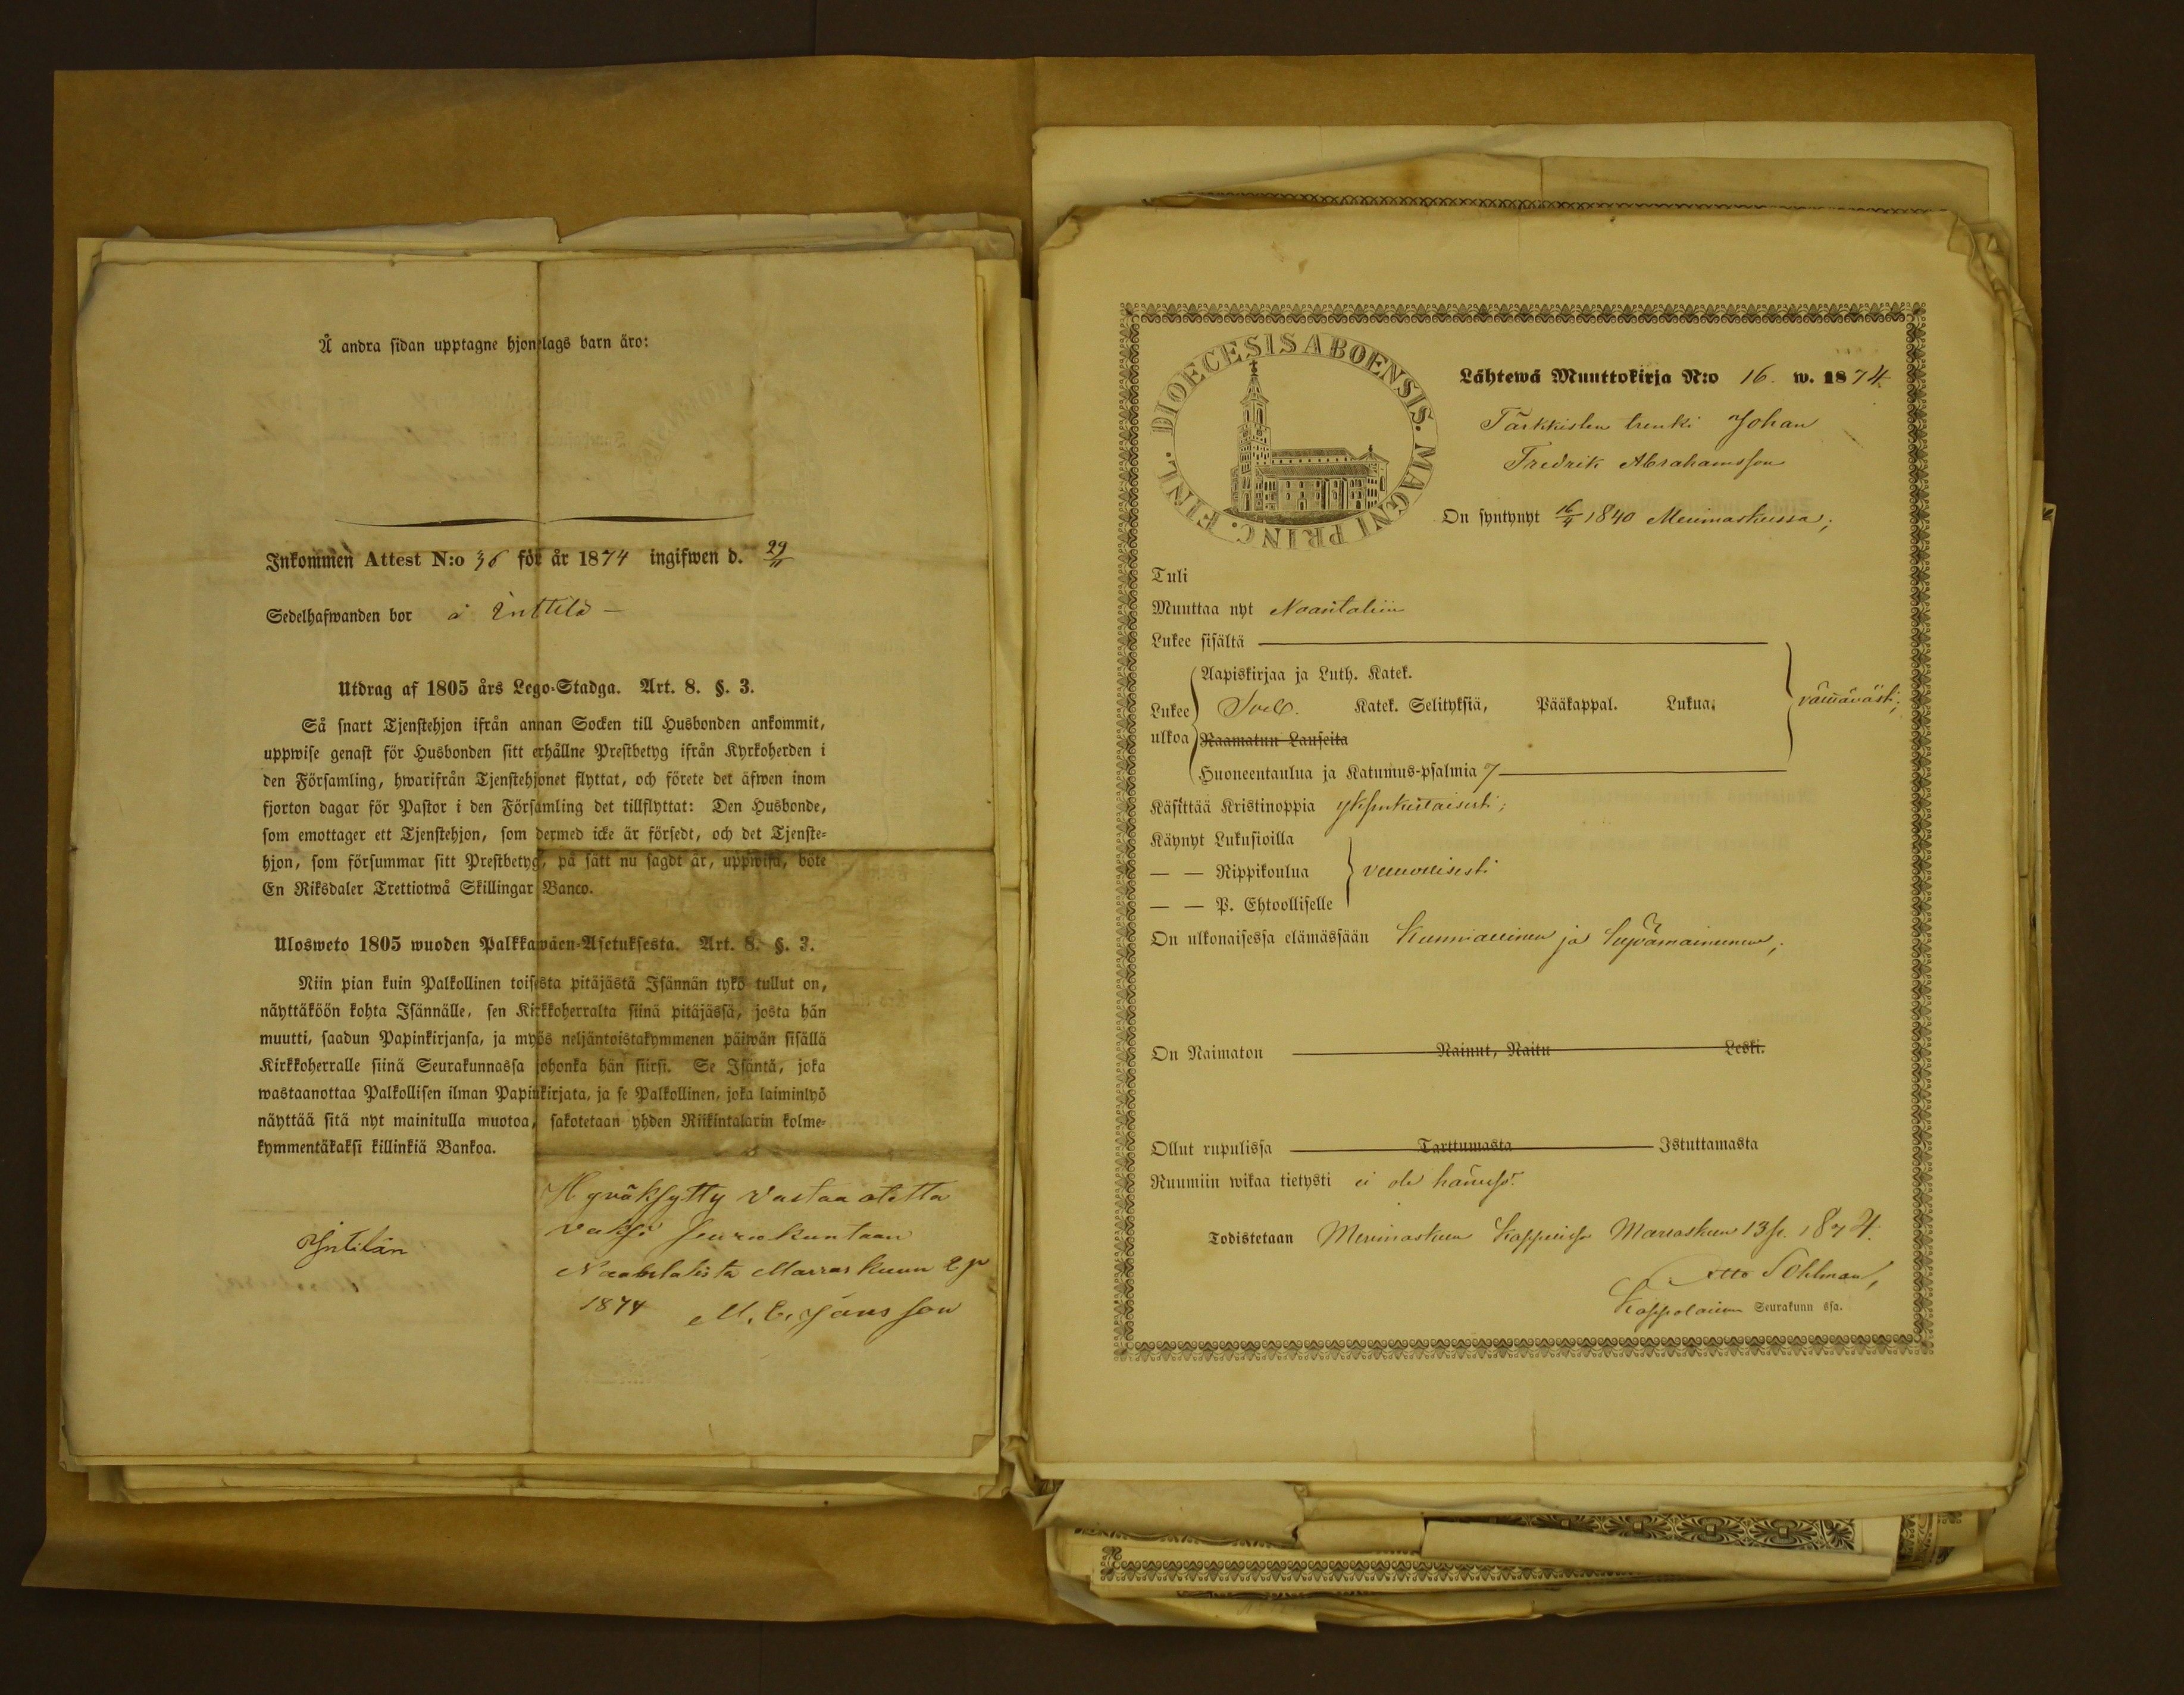 Å andra sidan upptagne hjonelags barn äro:
Inkommen Attest N:o 36 för år 1874 ingifwen d. 29/11
Sedelhafwanden bor å Inttilä —
Utdrag af 1805 års Lego-Stadga. Art. 8. §. 3.
Så snart Tjenstehjon ifrån annan Socken till Husbonden ankommit,
uppwise genast för Husbonden sitt erhållne Prestbetyg ifrån Kyrkoherden i
den Församling, hwarifrån Tjenstehjonet flyttat, och förete det äfwen inom
fjorton dagar för Pastor i den Församling det tillflyttat: Den Husbonde,
som emottager ett Tjenstehjon, som dermed icke är försedt, och det Tjenste-
hjon, som försummar sitt Prestbetyg, på sätt nu sagdt är, uppwisa, böte
En Riksdaler Trettiotwå Skillingar Banco.
Ulosweto 1805 wuoden Palkkawäen-Asetuksesta. Art. 8. §. 3.
Niin pian kuin Palkollinen toisesta pitäjästä Isännän tykö tullut on,
näyttäköön kohta Isännälle, sen Kirkkoherralta siinä pitäjässä, josta hän
muutti, saadun Papinkirjansa, ja myös neljäntoistakymmenen päiwän sisällä
Kirkkoherralle siinä Seurakunnassa johonka hän siirsi. Se Isäntä, joka
wastaanottaa Palkollisen ilman Papinkirjata, ja se Palkollinen, joka laiminlyö
näyttää sitä nyt mainitulla muotoa, sakotetaan yhden Riikintalarin kolme-
kymmentäkaksi killinkiä Bankoa.
Hyväksytty vastaa otetta
vaksi seurakuntaan
Naabelalista Marras kuun 2 p
1874 M. E. Jansson
Intilän
DIOECESIS ABOENSIS. MAGNI PRINC. FINL.
Lähtewä Muuttokirja N:o 16. w. 1874.
Tärkkisten trenki Johan
Fredrik Abrahamsson
On syntynyt 16/4 1840 Merimaskussa;
Tuli
Muuttaa nyt Naantaliin
Lukee sisältä
Aapiskirjaa ja Luth. Katek.
Lukee Sveb. Katek. Selityksiä, Pääkappal. Lukua; välttävästi;
ulkoa Raamatun Lauseita
Huoneentaulua ja Katumus-psalmia 7
Käsittää Kristinoppia yksinkertaisesti;
Käynyt Lukusioilla
— — Rippikoulua vuosittaisesti
— — P. Ehtoolliselle
On ulkonaisessa elämässään Kunniallinen ja hyvämaineinen;
On Naimaton Nainut, Naitu Leski.
Ollut rupulissa Tarttumasta Istuttamasta
Ruumiin wikaa tietysti ei ole hänessä.
Todistetaan Merimaskun Kappelissa Marraskuun 13 p. 1874.
Otto Pohlman,
Kappalainen Seurakunn ssa.